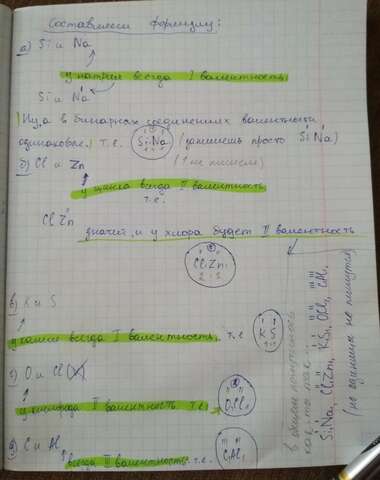 Составляем формулу:
а) Si и Na
у натрия всегда I валентность.
Si и Na
Ну, а в бинарных соединениях валентности
одинаковые. т.е. SiNa (запишешь просто SiNa)
б) Cl и Zn (1 не пишем)
у цинка всегда II валентность
т.е.
Cl Zn значит, и у хлора будет II валентность
Cl₂Zn₁
в) K и S
у калия всегда I валентность. т.е K₁S₁
г) O и Cl
у кислорода II валентность. т.е. O₁Cl₁
д) C и Al
всегда III валентность. т.е. C₁Al₁
SiNa, Cl₁Zn₁, K₁S₁, OCl₁, CAl₁
(но единицы не пишутся)